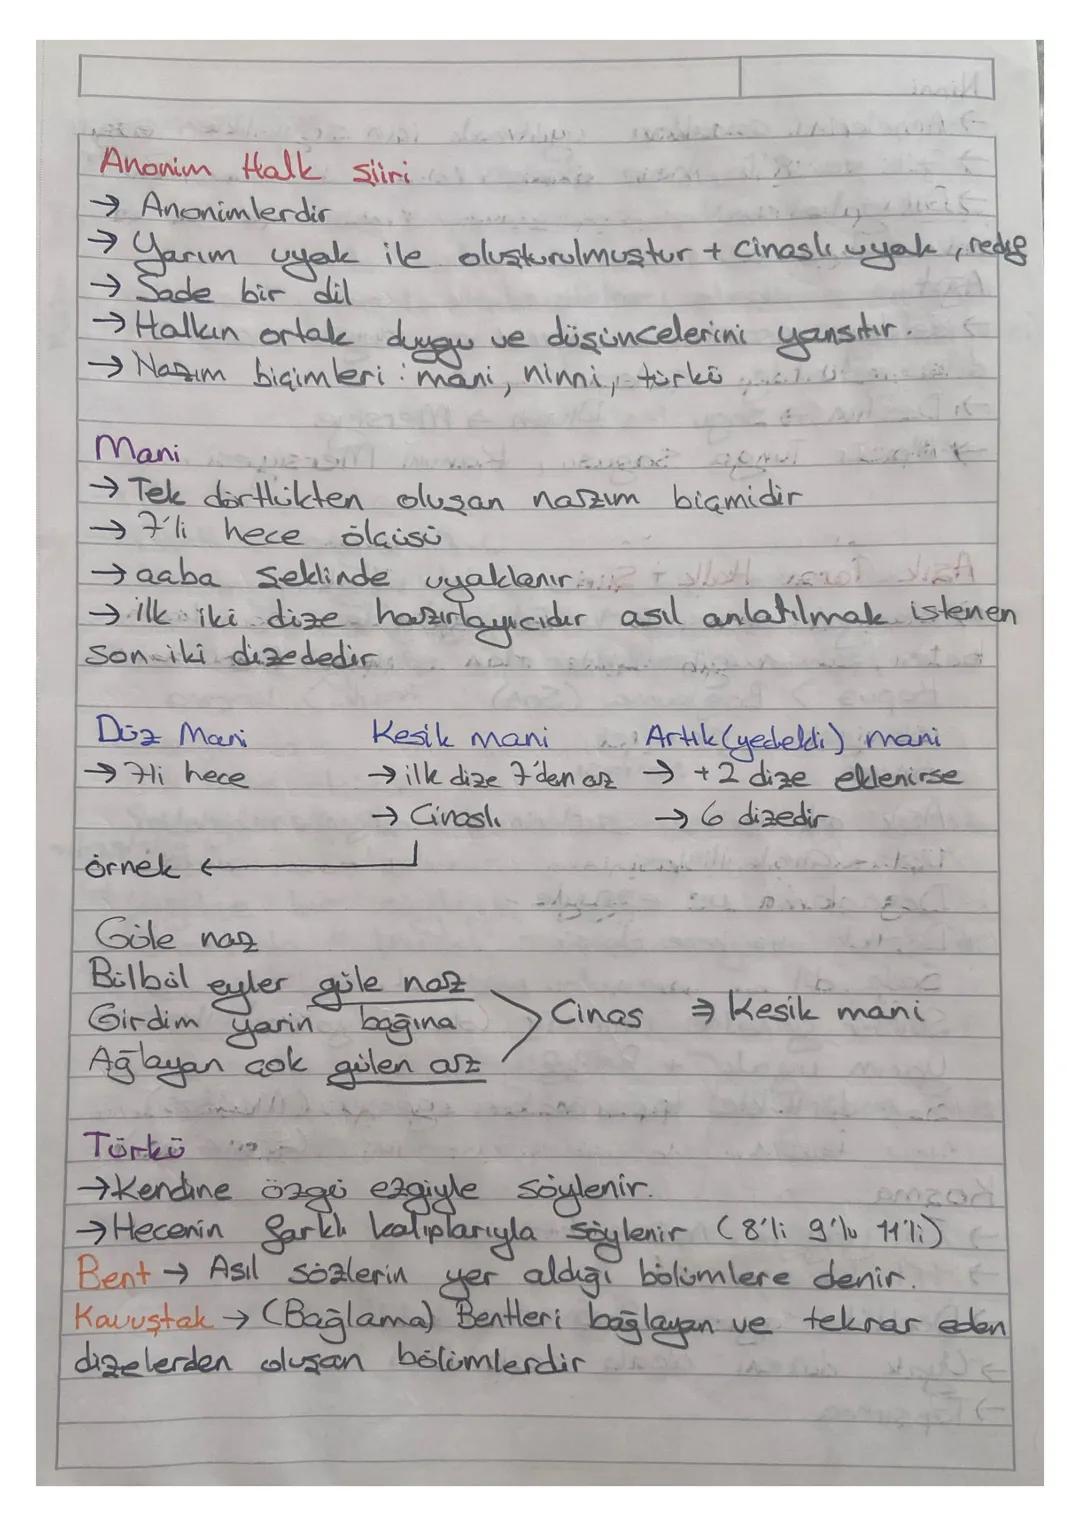 Anonim Halk şiiri
→ Anonimlerdir
→ Yarım uyak ile oluşturulmuştur + cinaslı uyak, redif
→ Sade bir dil
→ Halkın ortak duygu ve düşüncelerini yansıtır.
→ Nazım biçimleri : mani, ninni, türkü
Mani
→ Tek dörtlükten oluşan nazım biçmidir
→ 7'li hece ölçüsü
→ aaba şeklinde uyaklanır
→ ilk iki dize hazırlayıcıdır asıl anlatılmak istenen
son iki dizededir
Düz Mani Kesik mani Artık (yedekli) mani
→ 7li hece → ilk dize 7'den az → +2 dize eklenirse
→ Cinaslı → 6 dizedir
örnek ←
Güle naz
Bülbül eyler güle naz
Girdim yarin bağına Cinas ⇒ Kesik mani
Ağlayan çok gülen az
Türkü
→ Kendine özgü ezgiyle söylenir.
→ Hecenin farklı kalıplarıyla söylenir (8'li 9'lu 11'li)
Bent → Asıl sözlerin yer aldığı bölümlere denir.
Kavuştak → (Bağlama) Bentleri bağlayan ve tekrar eden
dizelerden oluşan bölümlerdir